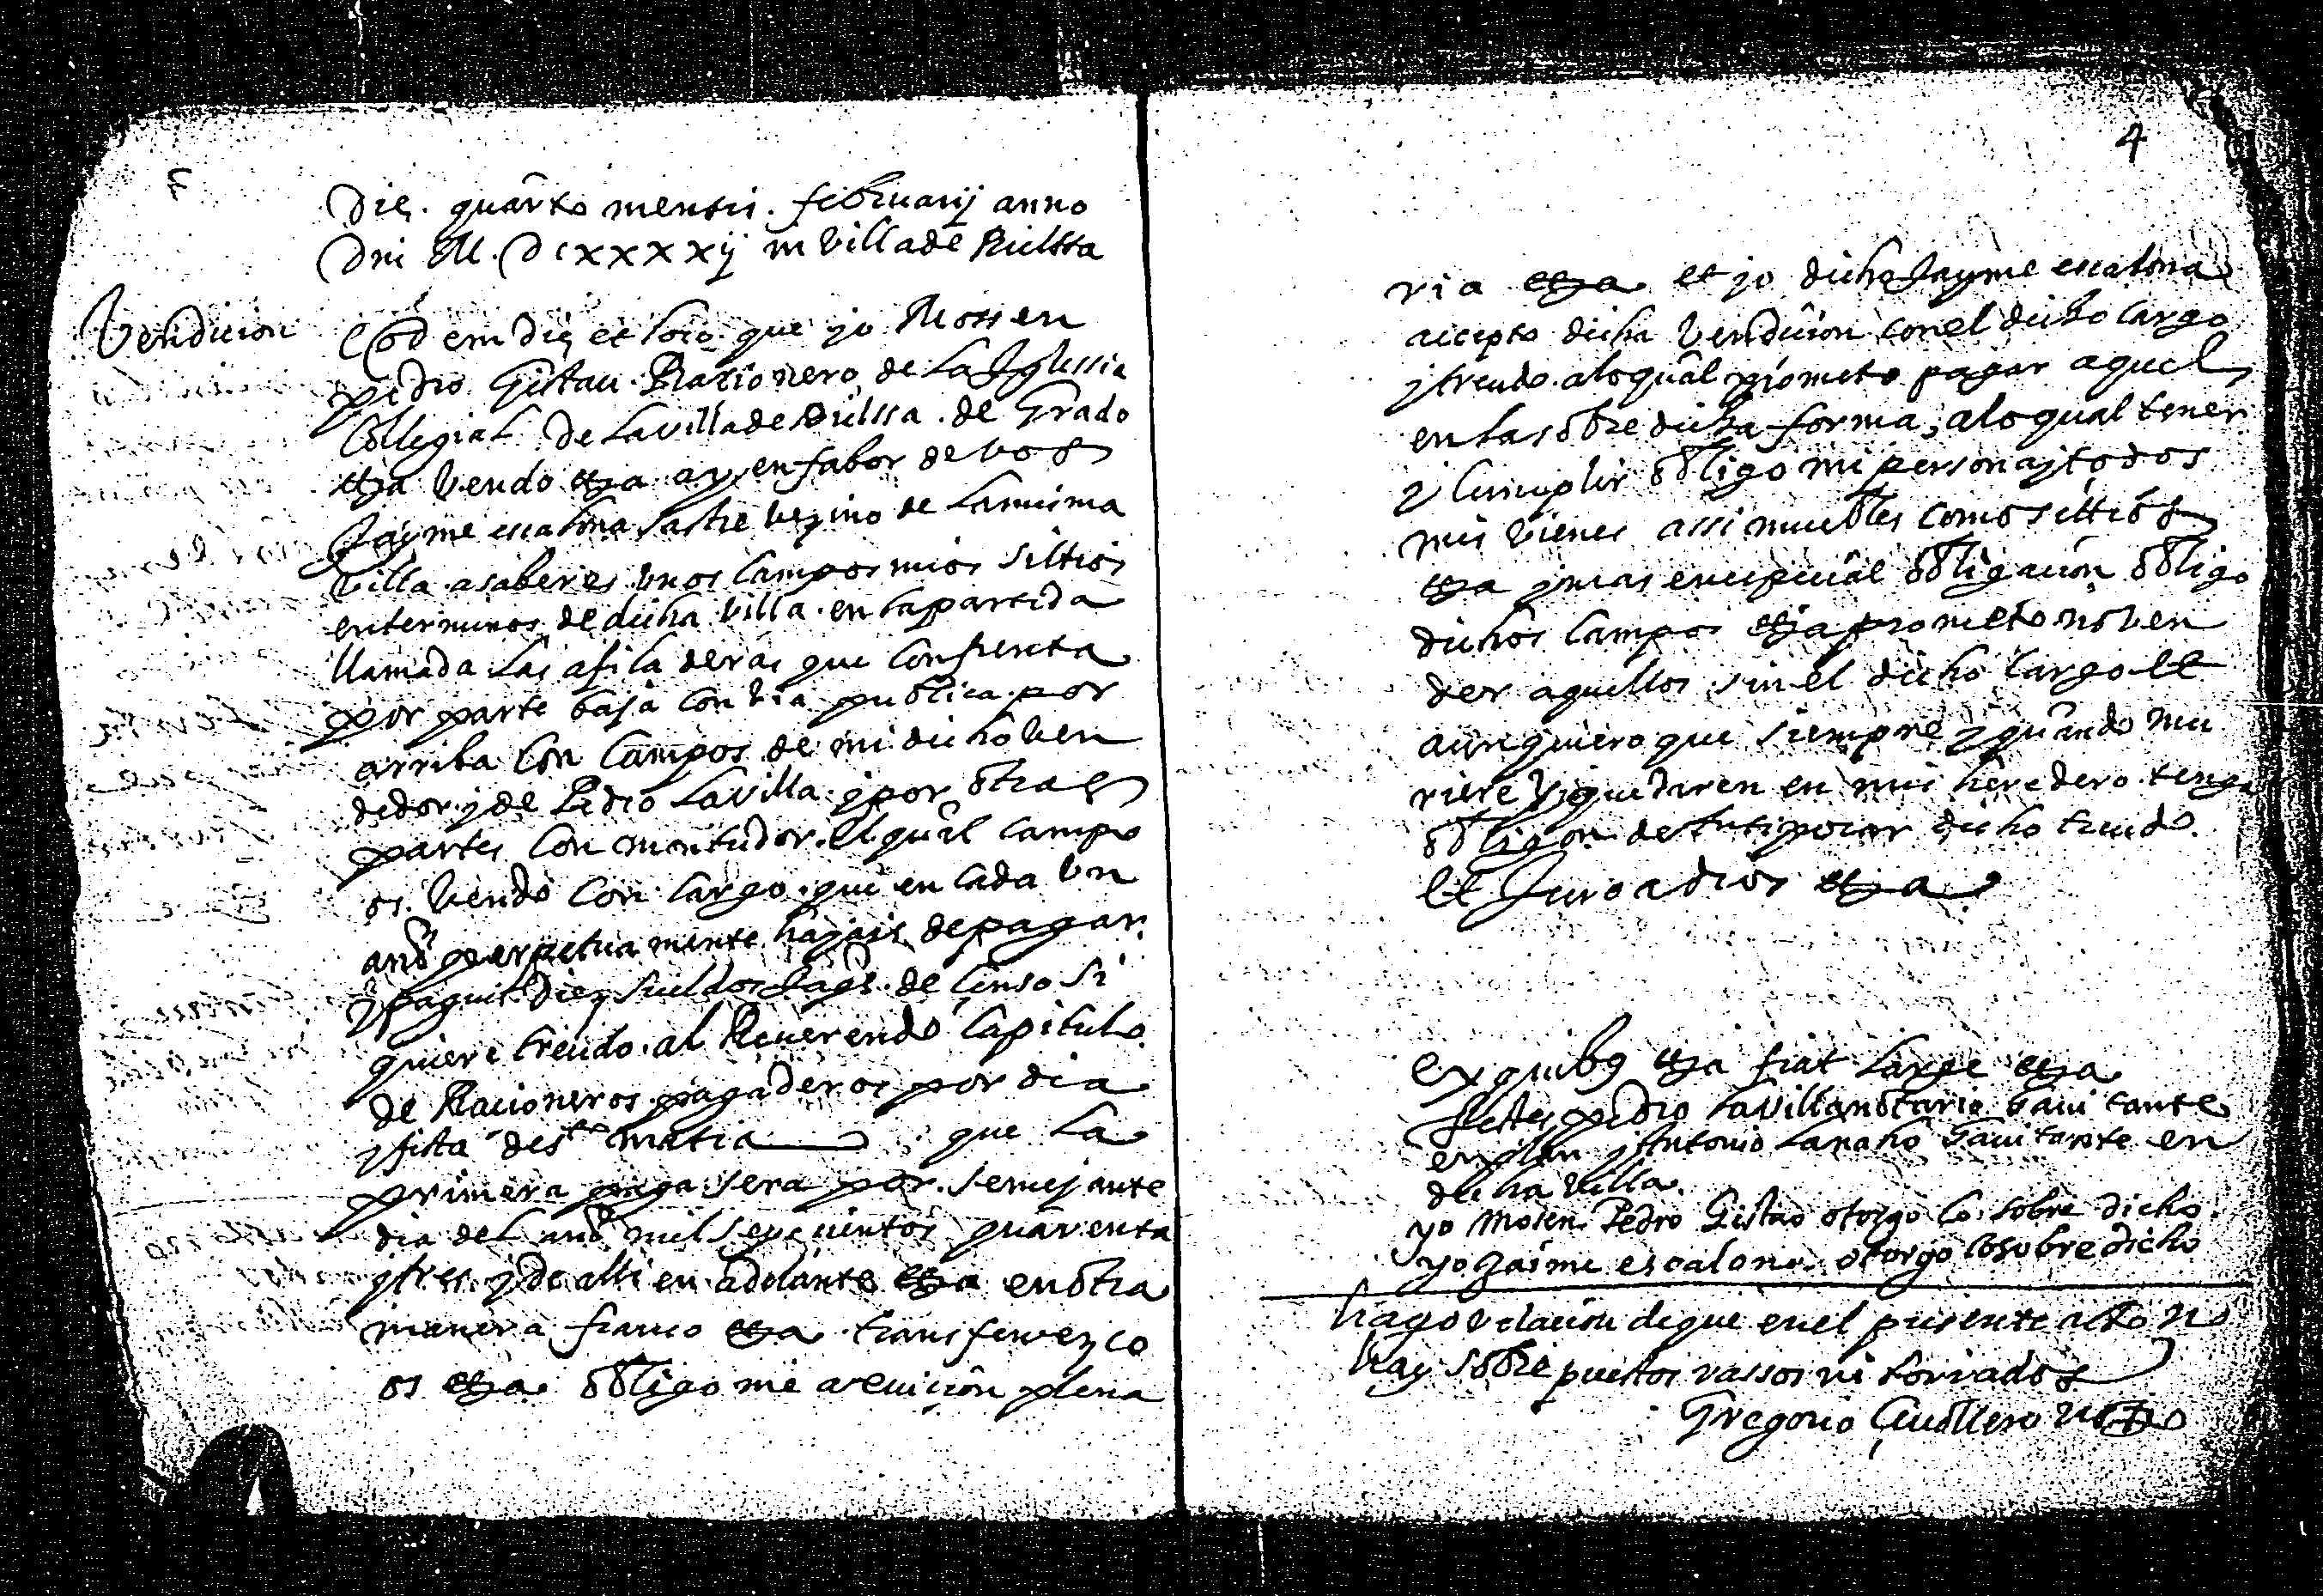 Die. quarto mensis. februarij anno
Dni M. Dcxxxxij in villa de
Vendicion
Eod em die et loco que yo Mossen
pedro Gistau. Racionero de la Iglessia
Collegial de la villa de de Grado
etza vendo etza ay en fabor de vos
Jayme escalona sastre vezino de la misma
villa. a saber es unos campos mios sittios
en terminos de dicha villa. en la partida
llamada las afiladeras que confrenta
por parte baja con via publica. por
arriba con campos de mi dicho ven
dedor. y de Pedro Lavilla. y por otras
partes con El qual campo
os. vendo con cargo. que en cada un
año perpetuamente. hajais de pagar.
y pagueis diez sueldos jaqs. de censo si
quiere treudo. al Reuerendo Capitulo
de Racioneros. pagaderos por dia
y fista de sta matia que la
primera paga sera por. semejante
dia del año mil seyscientos quarenta
y tres. y de alli en adelante etza en otra
manera franco etza. transferezco
os etza. obligo me a euicion plena
4
ria etza et jo dicho Jayme escalona
accepto dicha vendicion con el dicho cargo
y treudo. a lo qual prometo pagar aquel
en la sobre dicha forma, a lo qual tener
y cumplir obligo mi persona y todos
mis bienes assi muebles como sittios
etza y mas en especial obligacion obligo
dichos campos etza prometo no ven
der aquellos sin el dicho cargo et
aun quiero que siempre y quando mu
riere en mi heredero tenga
obligon de dicho treudo.
et Juro a dios etza
ex quibus etza fiat large etza
Testes pedro Lavilla notario havitante
en y Antonio havitante en
dicha villa.
yo mosen Pedro Gistao otorgo lo sobre dicho.
yo Jaime escalona otorgo lo sobre dicho
hago relacion de que en el presente acto no
hay sobre puestos rassos ni borrados
Gregorio noto